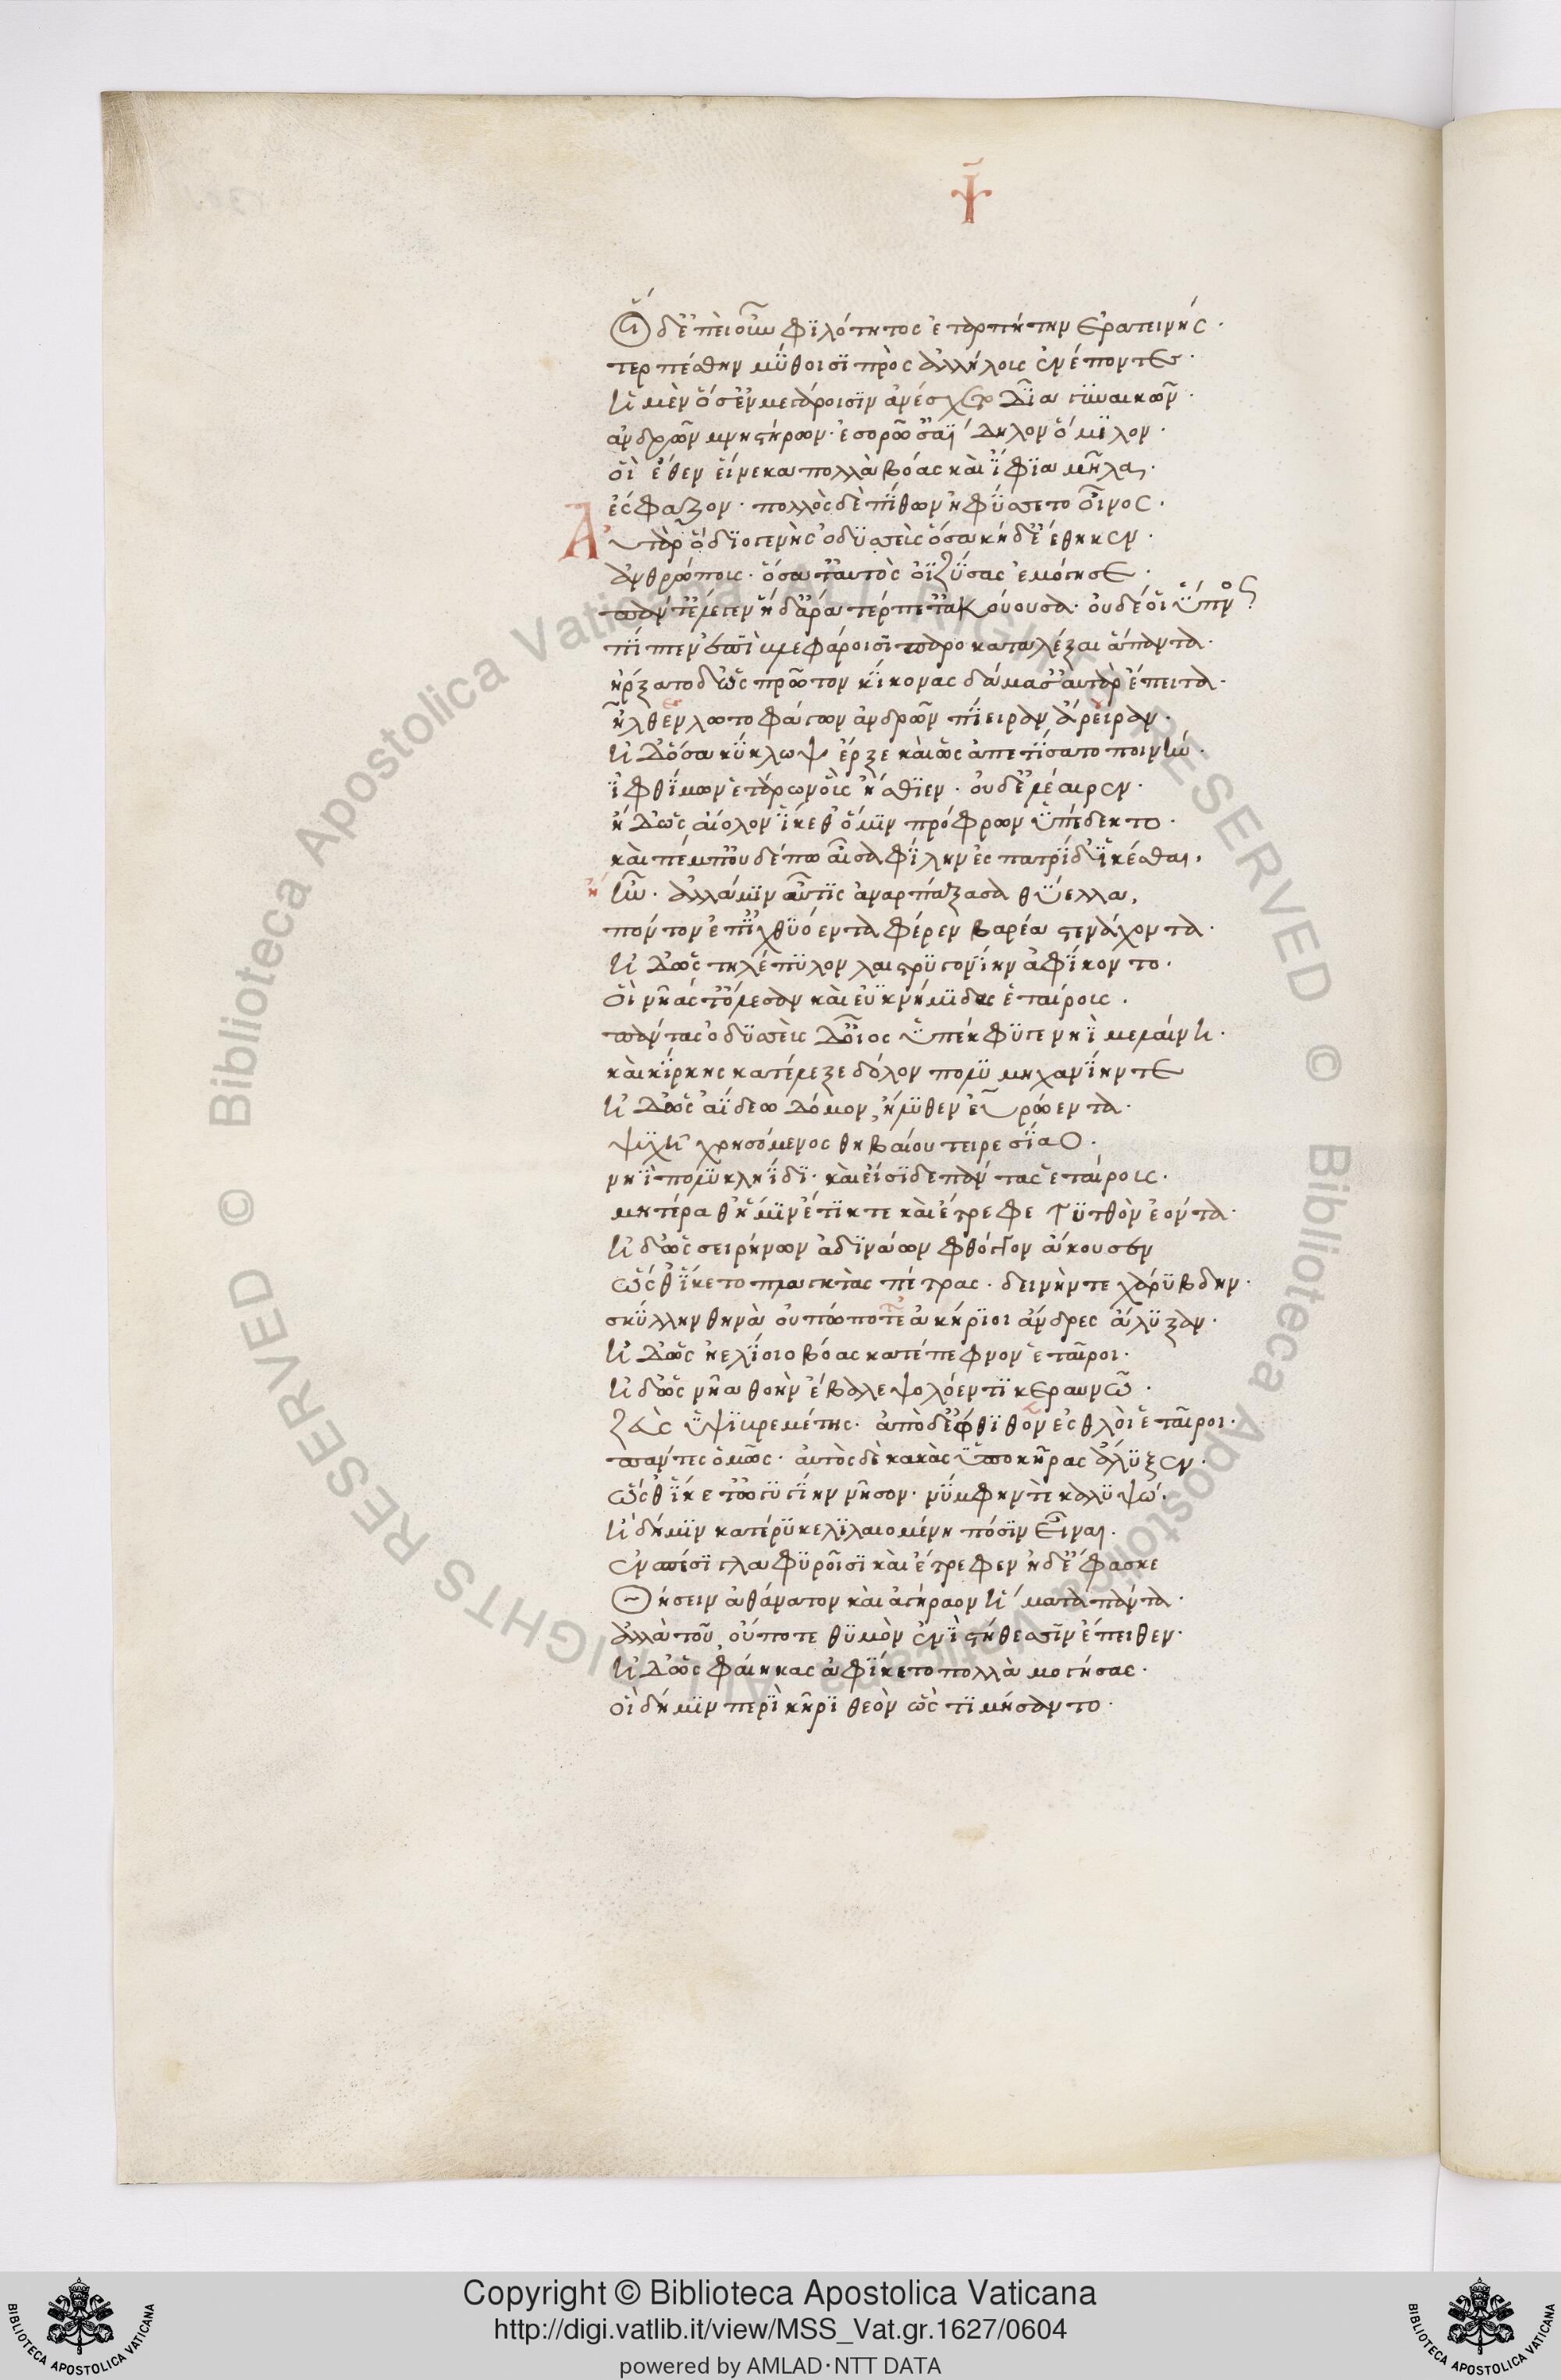 Ψ̄
Οἳ δ' ἐπεὶ οὖν φϊλότητος ἐταρπήτην ἐρατεινῆς·
τερπέσθην μΰθοισϊ πρὸς ἀλλήλοις ἐνέποντε·
ἡ μὲν ὅσ' ἐν μεγάροισϊν ἀνέσχετο δῖα γϋναικῶν·
ἀνδρῶν μνηστήρων· ἐσορῶσ' ἀΐδηλον ὅμϊλον·
οἳ ἕθεν εἵνεκα πολλὰ βόας καὶ ἴφϊα μῆλα,
ἔσφαζον· πολλὸς δὲ πΐθων ἠφΰσσετο οἶνος.
Αὐτὰρ ὃ δϊογενὴς ὀδϋσσεὺς ὅσα κήδε' ἔθηκεν·
ἀνθρώποις· ὅσα τ' αὐτὸς ὀϊζΰσας ἐμόγησε·
πάντ' ἔλεγεν· ἡ δ' ἄρα τέρπετ' ἀκούουσα· οὐδέ οἱ ὕπνος
πΐπτεν ἐπὶ βλεφάροισϊ πάρο καταλέξαι ἅπαντα·
ἤρξατο δ' ὡς πρῶτον κΐκονας δάμασ' αὐτὰρ ἔπειτα·
ἦλθεν λωτοφάγων ἀνδρῶν πΐειραν ἄρειραν·
ἠδ' ὅσα κΰκλωψ ἔρξε καὶ ὡς ἀπετΐσατο ποινὴν·
ἰφθΐμων ἑτάρων οὓς ἤσθϊεν· οὐδ' ἐλέαιρεν·
ἠδ' ὡς αἴολον ἵκεθ' ὅ μϊν πρόφρων ὑπέδεκτο·
καὶ πέμπ' οὐδέπω αἶσα φΐλην ἐς πατρΐδ' ἱκέσθαι,
ἤην· ἀλλά μϊν αὖτϊς ἀναρπάξασα θΰελλα,
πόντον ἐπ' ἰχθϋόεντα φέρεν βαρέα στενάχοντα·
ἠδ' ὡς τηλέπϋλον λαιστρϋγονΐην ἀφΐκοντο·
οἳ νῆάς τ' ὄλεσαν καὶ ἐϋκνήμϊδας ἑταίροις.
πάντας ὀδϋσσεὺς δ' οἶος ὑπέκφϋγε νηῒ μελαίνη·
καὶ κΐρκης κατέλεξε δόλον πολϋμηχανΐην τε
ἠδ' ὡς ἀΐδεω δόμον ἤλϋθεν εὐρώεντα·
ψϋχῆ χρησόμενος θηβαίου τειρεσΐαο·
νηῒ πολϋκληΐδϊ· καὶ εἴσϊδε πάντας ἑταίροις.
μητέρα θ' ἥ μϊν ἔτϊκτε καὶ ἔτρεφε τϋτθὸν ἐόντα·
ἠδ' ὡς σειρήνων ἀδϊνάων φθόγγον ἄκουσεν
ὥς θ' ἵκετο πλαγκτὰς πέτρας· δεινήν τε χάρϋβδην·
σκΰλλην θ' ἣν οὐ πώποτε ἀκήρϊοι ἄνδρες ἄλϋξαν·
ἠδ' ὡς ἠελΐοιο βόας κατέπεφνον ἑταῖροι·
ἠδ' ὡς νῆα θοὴν ἔβαλε ψολόεντϊ κεραυνῶ·
ζεὺς ὑψϊβρεμέτης· ἀπὸ δ' ἔφθϊθον ἐσθλοὶ ἑταῖροι·
πάντες ὁμῶς· αὐτὸς δὲ κακὰς ὑπὸ κῆρας ἄλϋξεν·
ὥς θ' ἵκετ' ὠγϋγΐην νῆσον· νΰμφην τε καλϋψώ.
ἣ δή μϊν κατέρϋκε λϊλαιομένη πόσϊν εἶναι.
ἐν σπέσϊ γλαφϋροῖσϊ καὶ ἔτρεφεν ἠδ' ἔφασκε
Θήσειν ἀθάνατον καὶ ἀγήραον ἤματα πάντα·
ἀλλὰ τοῦ οὔποτε θϋμὸν ἐνὶ στήθεσσϊν ἔπειθεν·
ἠδ' ὡς φαίηκας ἀφΐκετο πολλὰ μογήσας·
οἳ δή μϊν περὶ κῆρϊ θεὸν ὣς τϊμήσαντο·
© Biblioteca Apostolica Vaticana ALL RIGHTS RESERVED © Biblioteca Apostolica Vaticana ALL RIGHTS RESERVED
Copyright © Biblioteca Apostolica Vaticana
http://digi.vatlib.it/view/MSS_Vat.gr.1627/0604
powered by AMLAD·NTT DATA
BIBLIOTECA APOSTOLICA VATICANA
BIBLIOTECA APOSTOLICA VATICANA